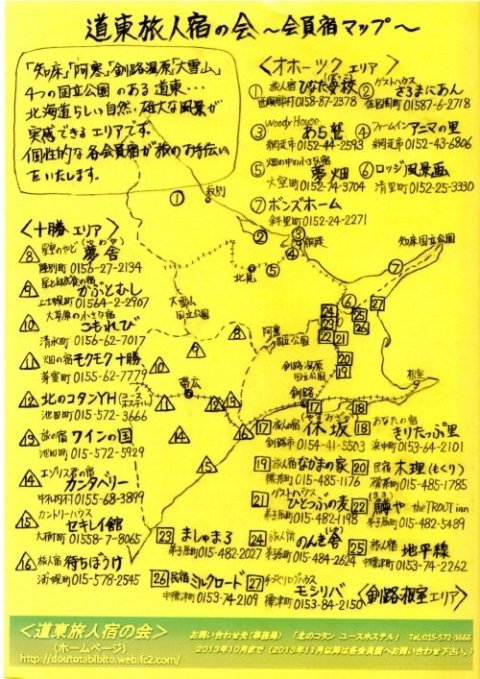 道東旅人宿の会～会員宿マップ～
「知床」「阿寒」「釧路湿原」「大雪山」
4つの国立公園のある道東…
北海道らしい自然、雄大な風景が
実感できるエリアです。
個性的な各会員宿が旅のお手伝い
をいたします。
＜オホーツクエリア＞
① 旅人宿 ひなた
西興部村 0158-87-2378
② ゲストハウス さろまにあん
佐呂間町 01587-6-2718
③ Woody House あら鷲
網走市 0152-44-2593
④ ファームイン アニマの里
網走市 0152-43-6806
⑤ 畑の中の小さな宿 夢畑
大空町 0152-74-3704
⑥ ロッジ風景画
清里町 0152-25-3330
⑦ ボンズホーム
斜里町 0152-24-2271
＜十勝エリア＞
8 星空のやど 夢舎
陸別町 0156-27-2134
9 かぶとむし
上士幌町 01564-2-2907
10 大草原の小さな宿 こもれび
清水町 0156-62-7017
11 畑の宿 モクモク十勝
芽室町 0155-62-7779
12 北のコタンYH(ユースホステル)
池田町 015-572-3666
13 旅の宿 ワインの国
池田町 015-572-5929
14 エゾリス君の宿 カンタベリー
中札内村 0155-68-3899
15 カントリーハウス セキレイ館
大樹町 01558-7-8065
16 旅人宿 待ちぼうけ
浦幌町 015-578-2545
紋別
網走
北見
知床国立公園
大雪山
国立公園
阿寒
国立公園
釧路湿原
国立公園
釧路
根室
帯広
17 旅人の宿 休坂
釧路市 0154-41-5503
18 あなたの宿 きりたっぷ里
浜中町 0153-64-2101
19 旅人宿 なかまの家
標茶町 015-485-1176
20 民宿 木理(もくり)
標茶町 015-485-1785
21 ゲストハウス ひとつぶの麦
弟子屈町 015-482-1198
22 鱒や the TROUT inn
弟子屈町 015-482-5489
23 ましゅまろ
弟子屈町 015-482-2027
24 旅人宿 のんき舎
弟子屈町 015-484-2624
25 旅人宿 地平線
中標津町 0153-74-2262
26 民宿 ミルクロード
中標津町 0153-74-2109
27 手づくりログハウス モシリバ
標津町 0153-84-2150
＜釧路根室エリア＞
＜道東旅人宿の会＞
（ホームページ）
http://doutotabibito.web.fc2.com/
お問い合わせ先（事務局） 「北のコタン ユースホステル」 Tel:015-572-3666
2013年10月まで（2013年11月以降は各会員宿へお問い合わせ下さい。）